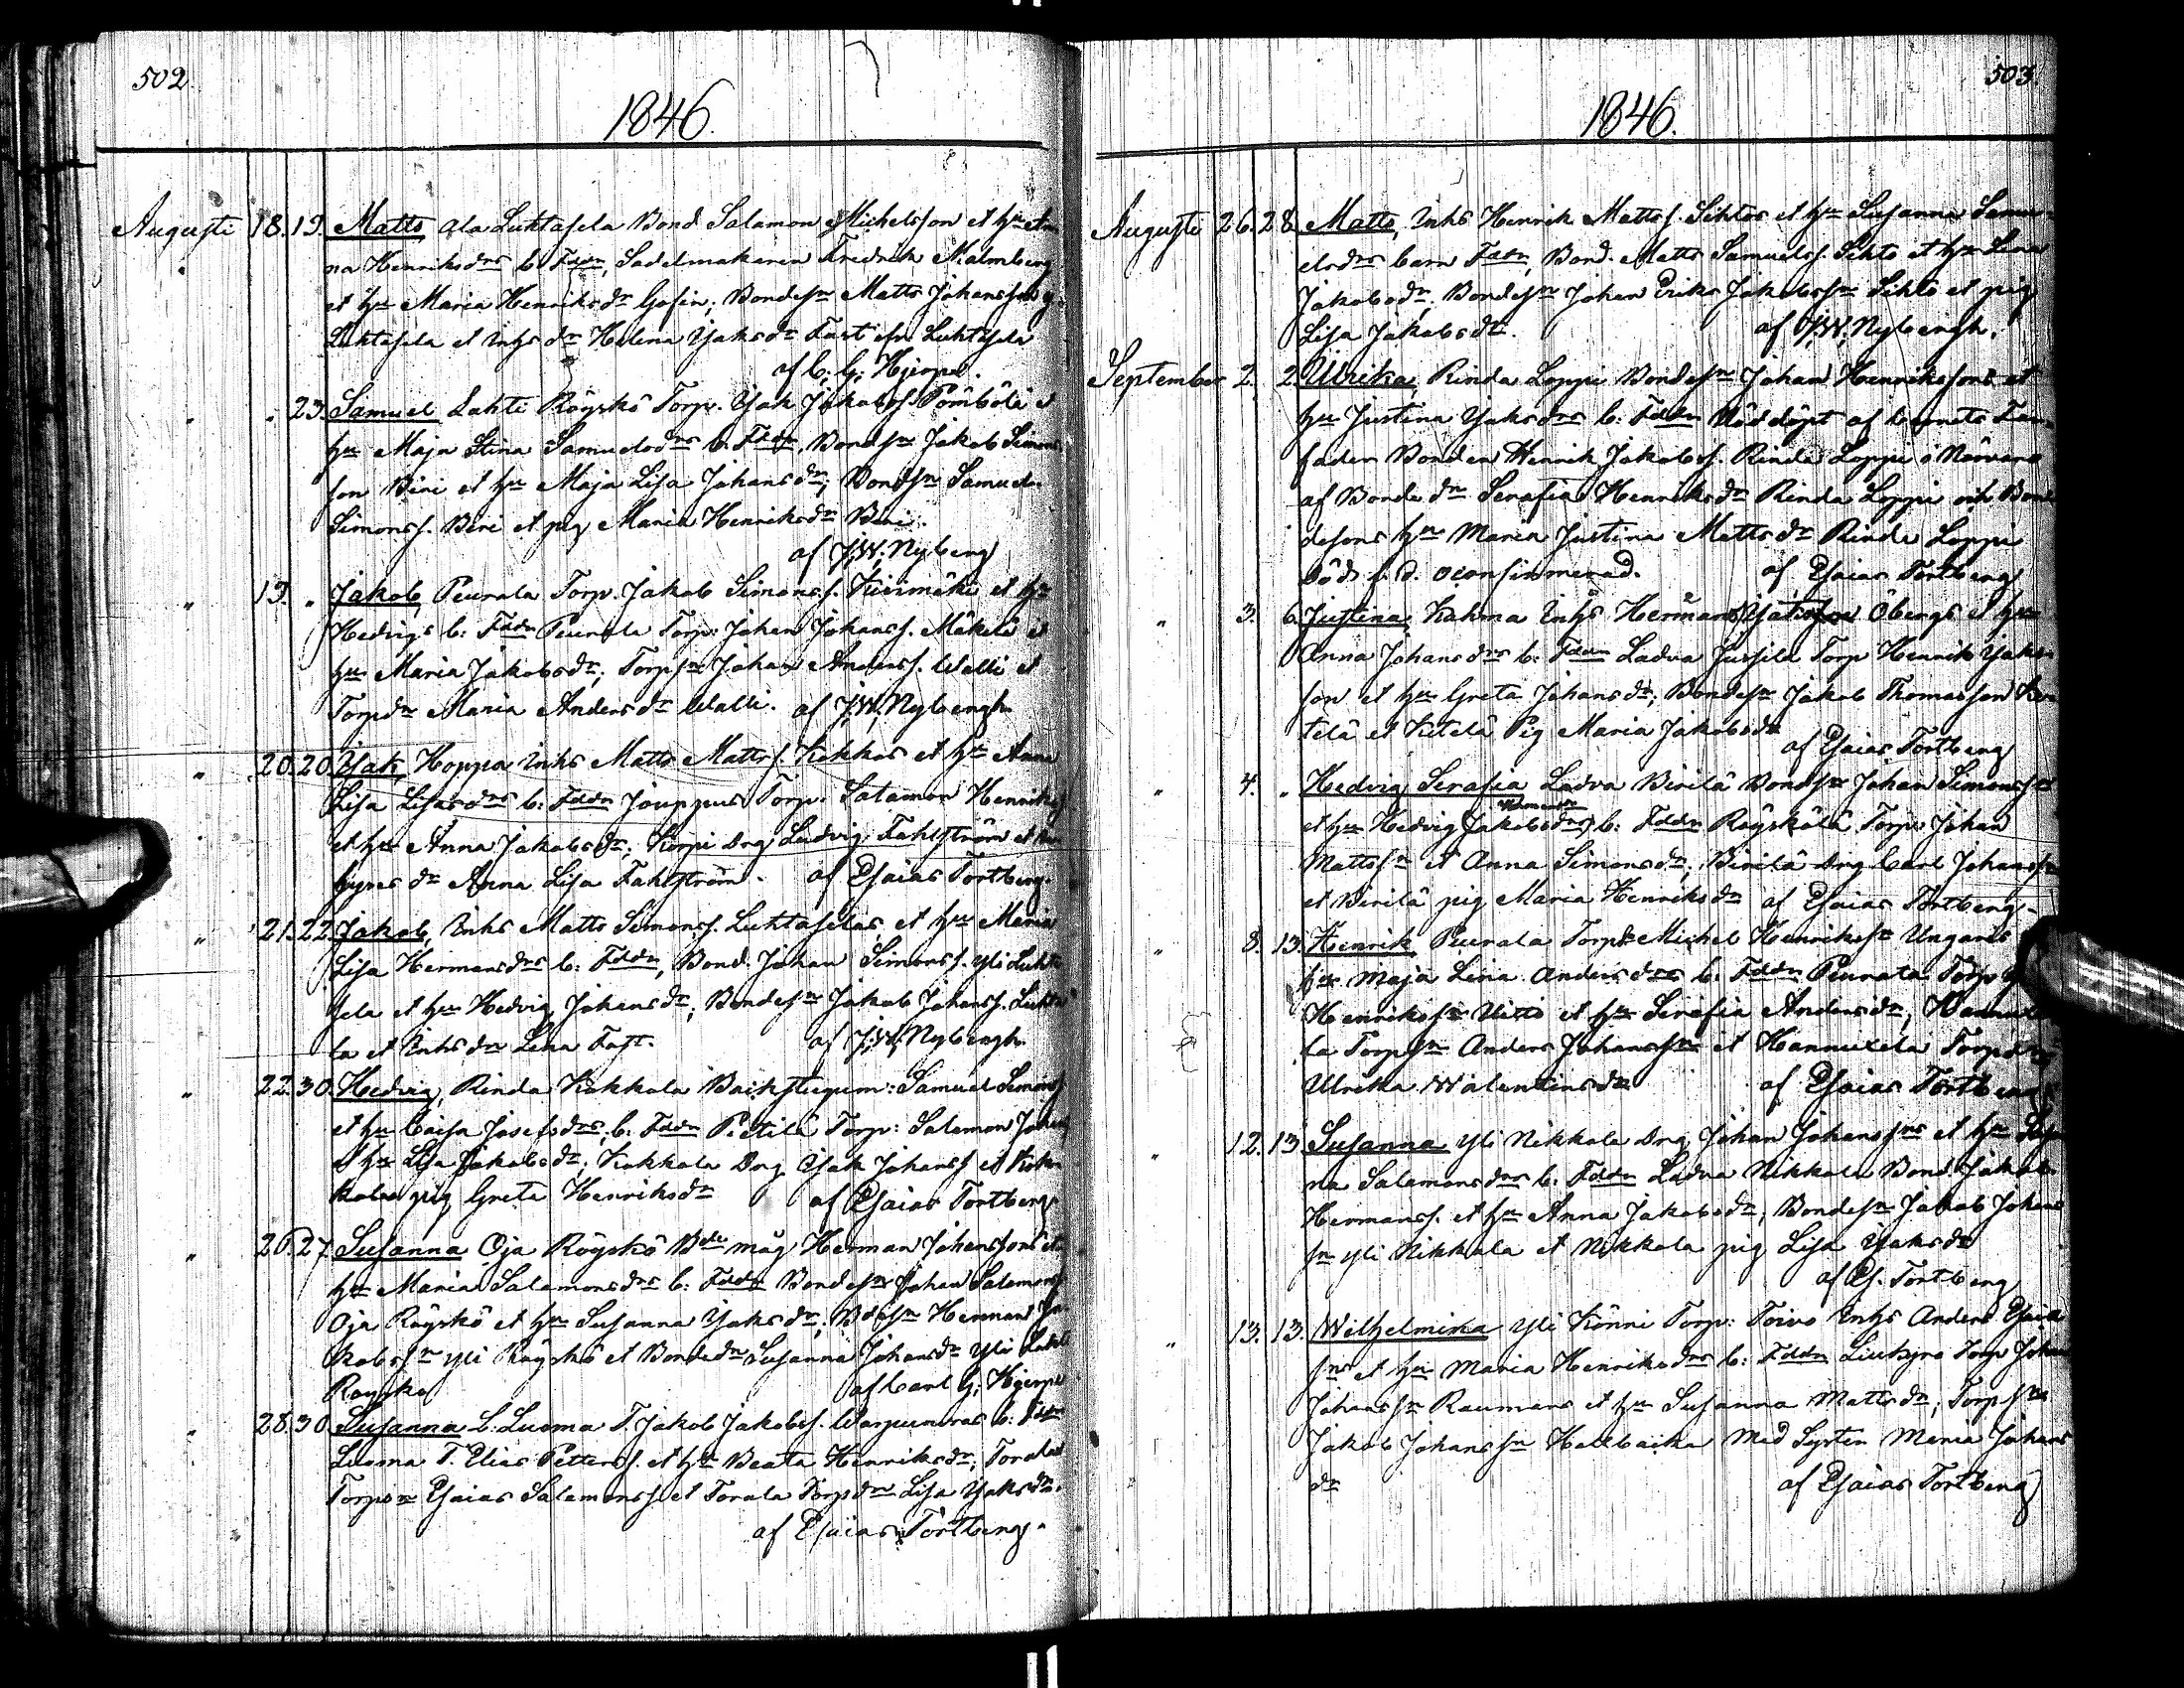 502.
1846.
Augusti 18. 19. Matts Ala Luhtasela Bond Salamon Michelsson et hu An-
na Henriksdrs b. Fddr, Sadelmakaren Fredrik Malmberg
et hu Maria Henriksdr Gosin; Bondesn Matts Johansson
Luhtasela et Inhs dr Helena Isaksdr Fast ifr Luhtasela
af C. G. Hjerpe.
" " 23. Samuel Lahti Röyskö Torp. Isak Jakobss. Pömbölä et
hu Maja Stina Samuelsdrs b. Fddr, Bondesn Jakob Simons
son Biri et hu Maja Lisa Johansdr; Bondsn Samuel
Simonss. Biri et pig Maria Henriksdr Biri.
af J.W. Nyberg
" 19. " Jakob, Peurala Torp. Jakob Simonss. Kivimäki et hu
Hedvigs b: Fddr Peurala Torp: Johan Johanss. Mäkelä et
hu Maria Jakobsdr; Torpsn Johan Anderss. Walli et
Torpdr Maria Andersdr Walli. af J.W. Nybergh.
" 20. 20. Isak, Hoppa Inhs Matts Mattss. Kokkos et hu Anna
Lisa Lisasdrs b: Fddr Jouppus Torp. Salamon Henrikss
et hu Anna Jakobsdr; Korpi Drg Ludvig Fahlström et
hynes dr Anna Lisa Fahlström. af Esaias Tortberg.
" 21. 22. Jakob, Inhs Matts Simonss. Luhtaselas et hu Maria
Lisa Hermansdrs b: Fddr, Bond. Johan Simonss. Yli Luhta
sela et hu Hedvig Johansdr; Bondesn Jakob Johanss. Luhta
la et Inhsdr Lena Fast. af J.W. Nybergh.
" 22. 30. Hedvig, Rinda Kokkola Backstugum: Samuel Simonss
et hu Caisa Josefsdrs b: Fddr Pietilä Torp: Salamon Johanss
et hu Lisa Jakobsdr; Kokkola Drg Isak Johanss et Kok-
kola pig Greta Henriksdr af Esaias Tortberg
" 26. 27. Susanna Oja Röyskö Bde måg Herman Johanssons et
hu Maria Salamonsdrs b: Fddr Bondesn Johan Salamonss
Oja Röyskö et hu Susanna Isaksdr; Bdesn Herman Ja-
kobssn Yli Röyskö et Bondedr Susanna Johansdr Yli Lahti
Röyskö af Carl G. Hjerpe
" 28. 30. Susanna L. Luoma T. Jakob Jakobss. Warpumäs b: Fddr
Luoma T. Elias Petterss. et hu Beata Henriksdr; Torala
Torpsn Esaias Salamonss et Torala Torpdr Lisa Isaksdr.
af Esaias Tortberg.
503.
1846.
Augusti 26. 28. Matts, Inhs Henrik Mattss. Sihtos et hu Susanna Samu-
elsdrs barn Fddr, Bond. Matts Samuelss. Sihto et hu Lena
Jakobsdr; Bondesn Johan Eriks Jakobssn Sihto et pig
Lisa Jakobsdr. af J.W. Nybergh.
September 2. 2. Ulrika, Rinda Loppi Bondesn Johan Henrikssons et
hu Justina Isaksdrs b: Fddr Nöddöpt af barnets Far-
fader Bonden Henrik Jakobss. Rinda Loppi i Närvaro
af Bonde dr Serafia Henriksdr Rinda Loppi och Bon
desons hu Maria Justina Mattsdr Rinda Loppi
död s. d. oconfirmerad. af Esaias Tortberg
" 3. 6. Justina, Kahma Inhs Herman Isaksson Öbergs et hu
Anna Johansdrs b: Fddr Ladva Jussila Torp Henrik Isaks
son et hu Greta Johansdr; Bondesn Jakob Thomasson Ke-
telä et Ketelä Pig Maria Jakobsdr
af Esaias Tortberg
" 4. " Hedvig Serafia Ladva Birilä Bondsn Johan Simonss
Hermansdr
et hu Hedvig Jakobsdrs b: Fddr Röyskölä Torp: Johan
Mattssn et Anna Simonsdr; Birilä Drg Carl Johanssn
et Birilä pig Maria Henriksdr af Esaias Tortberg.
" 8. 13. Henrik Peurala Torpsn Michel Henrikssn Ungars
hu Maja Lena Andersdrs b: Fddr Peurala Torp
Henrikssn Uitto et hu Serafia Andersdr; Hannuxe
la Torpsn Anders Johanssn et Hannuxela Torpdr
Ulrika Walentinsdr af Esaias Tortberg
" 12. 13. Susanna Yli Nikkola Drg Johan Johanssns et hu Susan
na Salamonsdrs b: Fddr Ladva Nikkola Bond Jakob
Hermanss. et hu Anna Jakobsdr; Bondesn Jakob Johans
sn Yli Nikkola et Nikkola pig Lisa Isaksdr
af Es. Tortberg
" 13. 13. Wilhelmina Yli Könni Torp: Toivo Inhs Anders Esaia
sns et hu Maria Henriksdrs b: Fddr Liukyro Torp Johan
Johanssn Raumans et hu Susanna Mattsdr; Torpsn
Jakob Johanssn Hallbacka med Systen Maria Johans
dr af Esaias Tortberg